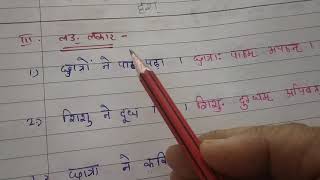 III. लङ् लकार -
1) छात्रों ने पाठ पढ़ा । छात्राः पाठम् अपठन् ।
2) शिशु ने दूध । शिशुः दुग्धम् अपिबत्
छात्रा ने